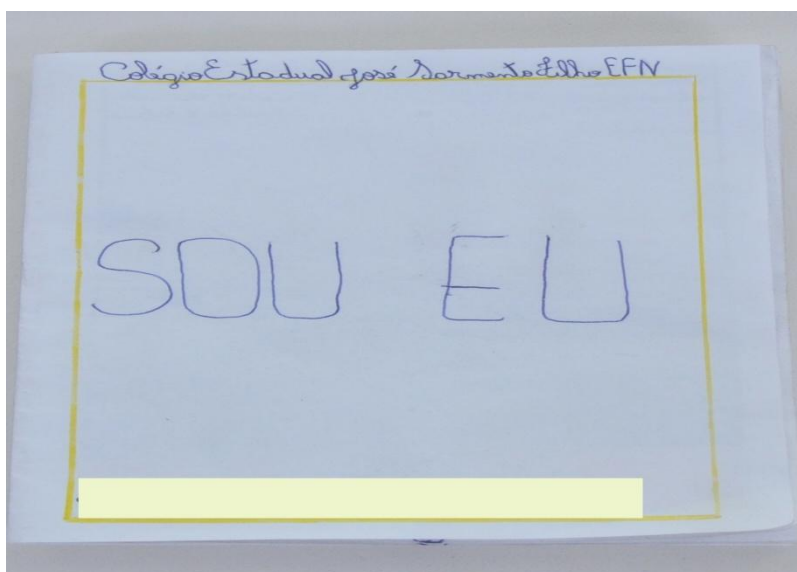 Colégio Estadual José Sarmento Filho EFN
SOU EU